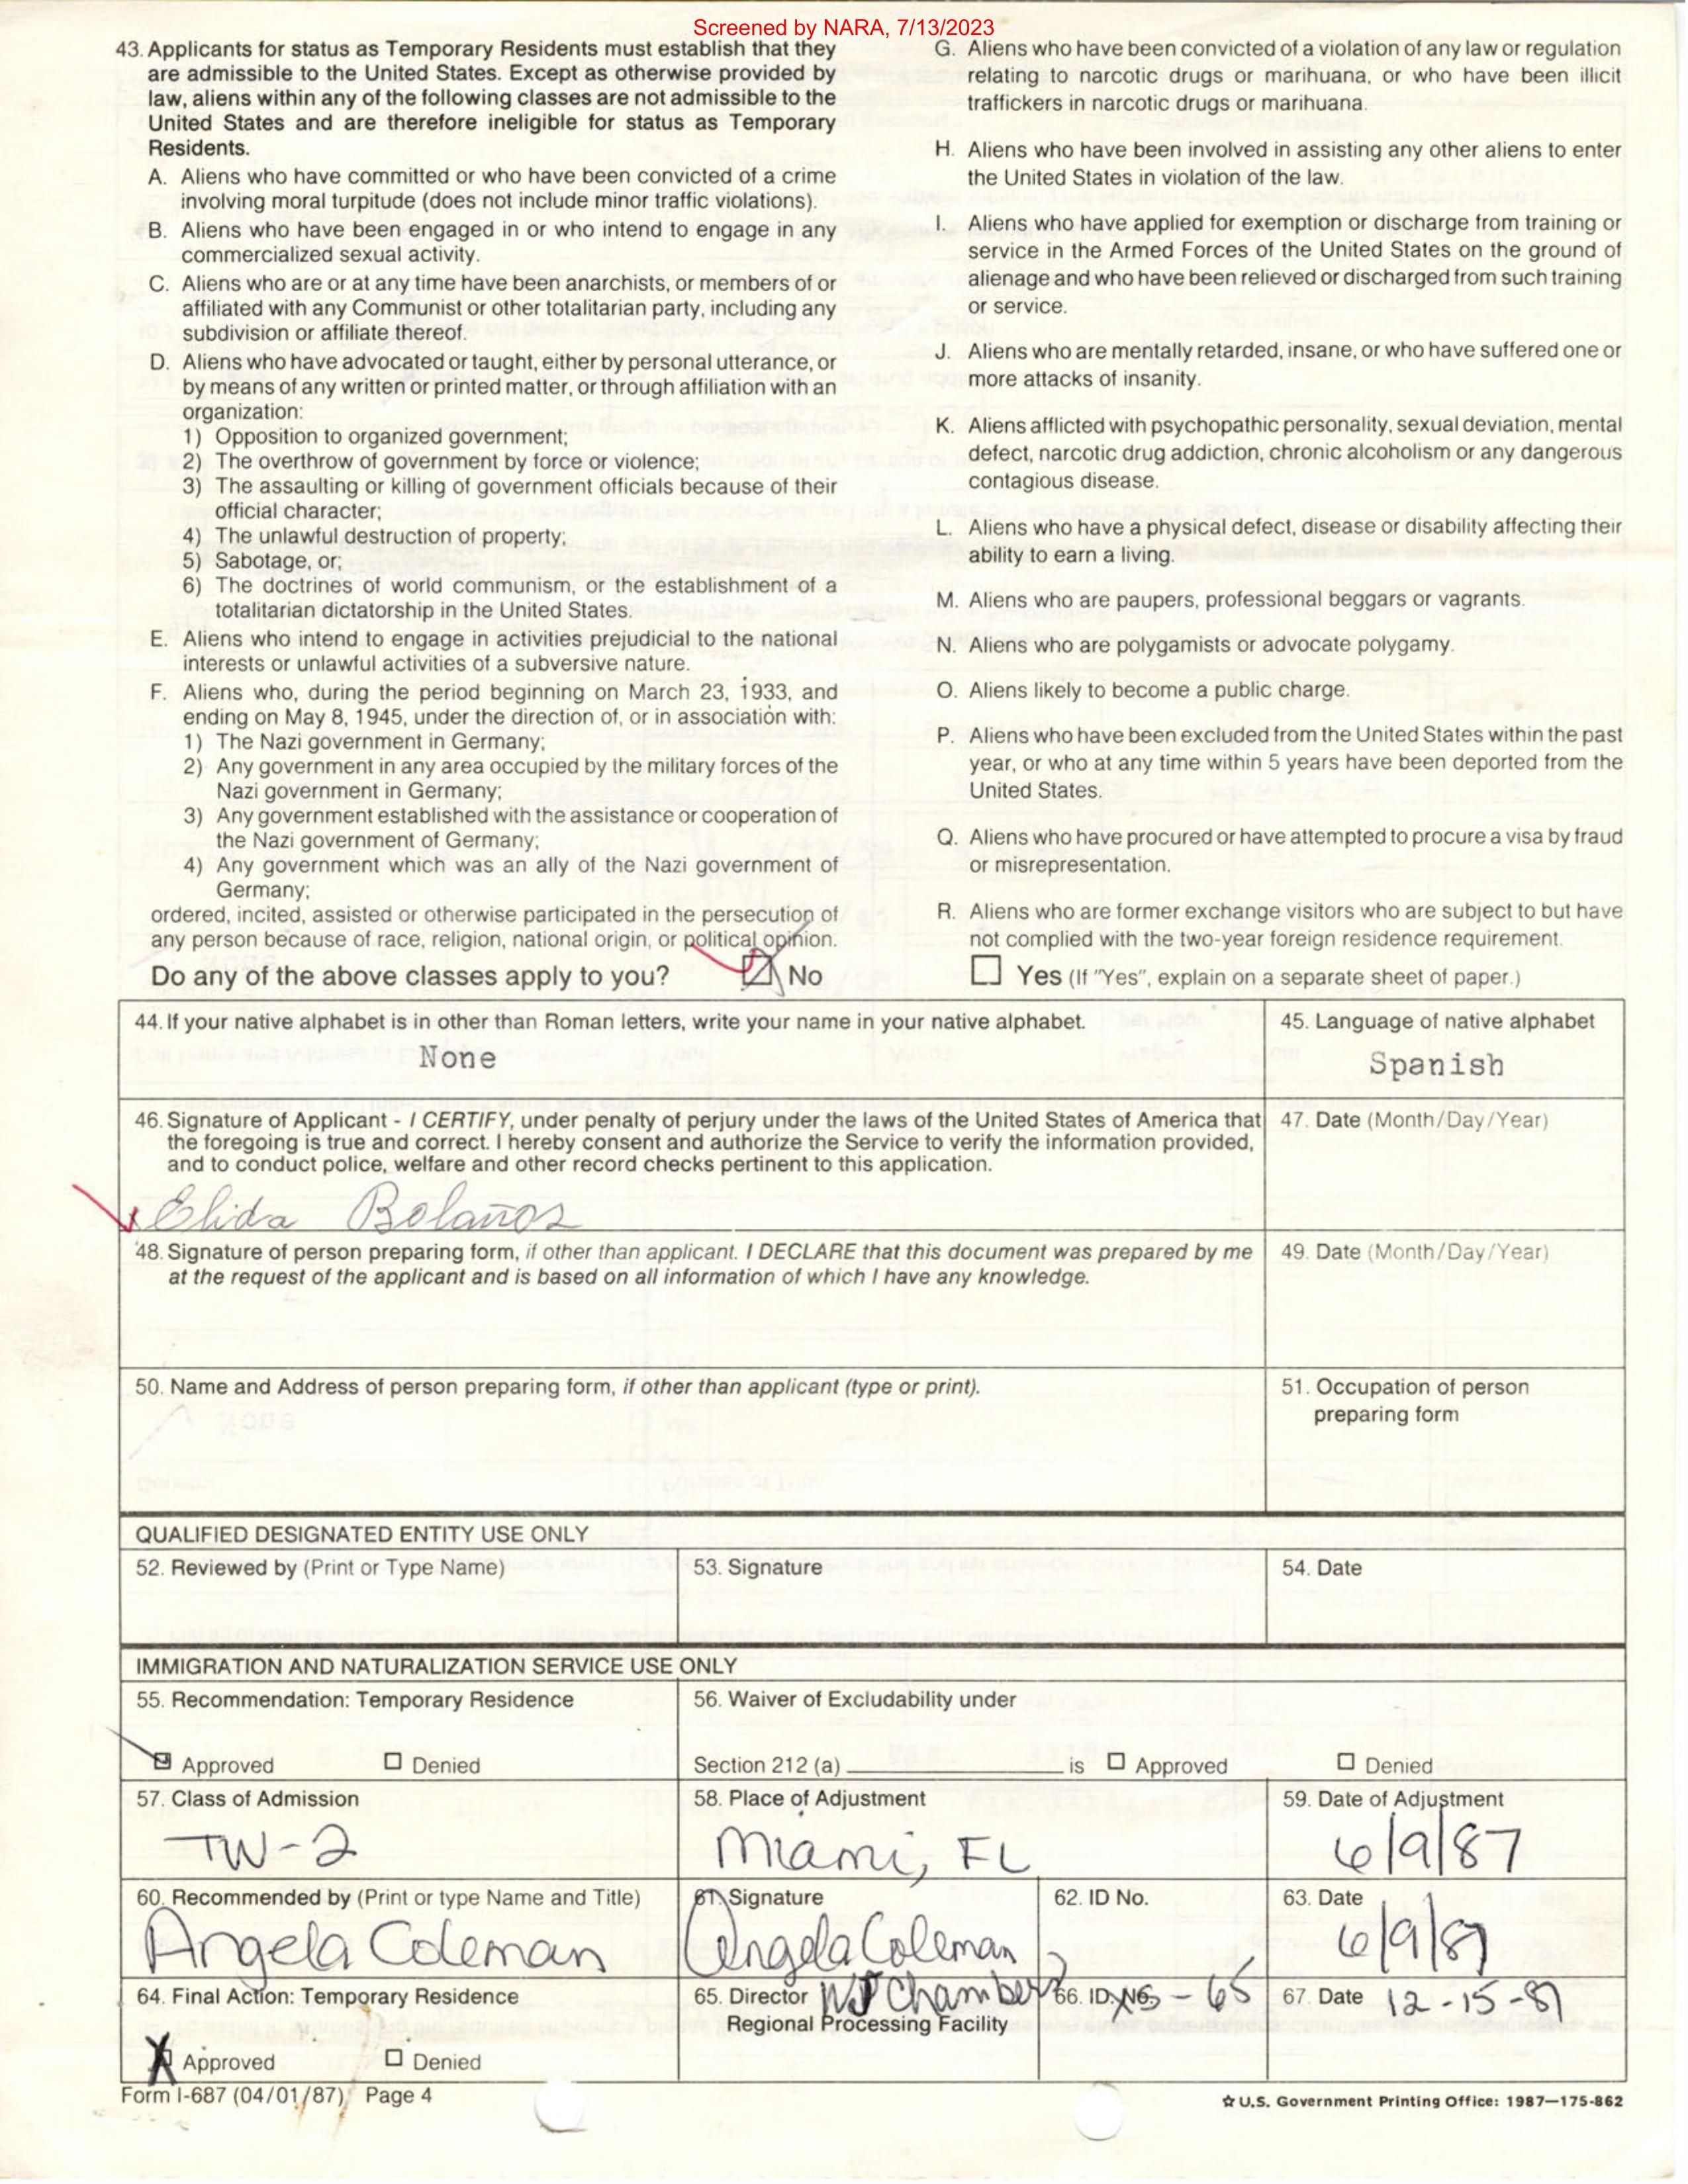 Screened by NARA, 7/13/2023
43. Applicants for status as Temporary Residents must establish that they
are admissible to the United States. Except as otherwise provided by
law, aliens within any of the following classes are not admissible to the
United States and are therefore ineligible for status as Temporary
Residents.
A. Aliens who have committed or who have been convicted of a crime
involving moral turpitude (does not include minor traffic violations).
B. Aliens who have been engaged in or who intend to engage in any
commercialized sexual activity.
C. Aliens who are or at any time have been anarchists, or members of or
affiliated with any Communist or other totalitarian party, including any
subdivision or affiliate thereof.
D. Aliens who have advocated or taught, either by personal utterance, or
by means of any written or printed matter, or through affiliation with an
organization:
1) Opposition to organized government;
2) The overthrow of government by force or violence;
3) The assaulting or killing of government officials because of their
official character;
4) The unlawful destruction of property;
5) Sabotage, or;
6) The doctrines of world communism, or the establishment of a
totalitarian dictatorship in the United States.
E. Aliens who intend to engage in activities prejudicial to the national
interests or unlawful activities of a subversive nature.
F. Aliens who, during the period beginning on March 23, 1933, and
ending on May 8, 1945, under the direction of, or in association with:
1) The Nazi government in Germany;
2) Any government in any area occupied by the military forces of the
Nazi government in Germany;
3) Any government established with the assistance or cooperation of
the Nazi government of Germany;
4) Any government which was an ally of the Nazi government of
Germany;
ordered, incited, assisted or otherwise participated in the persecution of
any person because of race, religion, national origin, or political opinion.
G. Aliens who have been convicted of a violation of any law or regulation
relating to narcotic drugs or marihuana, or who have been illicit
traffickers in narcotic drugs or marihuana.
H. Aliens who have been involved in assisting any other aliens to enter
the United States in violation of the law.
I. Aliens who have applied for exemption or discharge from training or
service in the Armed Forces of the United States on the ground of
alienage and who have been relieved or discharged from such training
or service.
J. Aliens who are mentally retarded, insane, or who have suffered one or
more attacks of insanity.
K. Aliens afflicted with psychopathic personality, sexual deviation, mental
defect, narcotic drug addiction, chronic alcoholism or any dangerous
contagious disease.
L. Aliens who have a physical defect, disease or disability affecting their
ability to earn a living.
M. Aliens who are paupers, professional beggars or vagrants.
N. Aliens who are polygamists or advocate polygamy.
O. Aliens likely to become a public charge.
P. Aliens who have been excluded from the United States within the past
year, or who at any time within 5 years have been deported from the
United States.
Q. Aliens who have procured or have attempted to procure a visa by fraud
or misrepresentation.
R. Aliens who are former exchange visitors who are subject to but have
not complied with the two-year foreign residence requirement.
Do any of the above classes apply to you? No Yes (If "Yes", explain on a separate sheet of paper.)
44. If your native alphabet is in other than Roman letters, write your name in your native alphabet.
None
45. Language of native alphabet
Spanish
46. Signature of Applicant - I CERTIFY, under penalty of perjury under the laws of the United States of America that
the foregoing is true and correct. I hereby consent and authorize the Service to verify the information provided,
and to conduct police, welfare and other record checks pertinent to this application.
x Elida Bolaños
47. Date (Month/Day/Year)
48. Signature of person preparing form, if other than applicant. I DECLARE that this document was prepared by me
at the request of the applicant and is based on all information of which I have any knowledge.
49. Date (Month/Day/Year)
50. Name and Address of person preparing form, if other than applicant (type or print).
51. Occupation of person
preparing form
QUALIFIED DESIGNATED ENTITY USE ONLY
52. Reviewed by (Print or Type Name)
53. Signature
54. Date
IMMIGRATION AND NATURALIZATION SERVICE USE ONLY
55. Recommendation: Temporary Residence
Approved Denied
56. Waiver of Excludability under
Section 212 (a) is Approved Denied
57. Class of Admission
TW-2
58. Place of Adjustment
Miami, FL
59. Date of Adjustment
6/9/87
60. Recommended by (Print or type Name and Title)
Angela Coleman
61. Signature
Angela Coleman
62. ID No.
63. Date
6/9/87
64. Final Action: Temporary Residence
Approved Denied
65. Director WJ Chambers
Regional Processing Facility
66. ID No. - 65
67. Date 12-15-87
Form I-687 (04/01/87) Page 4
☆ U.S. Government Printing Office: 1987—175-862